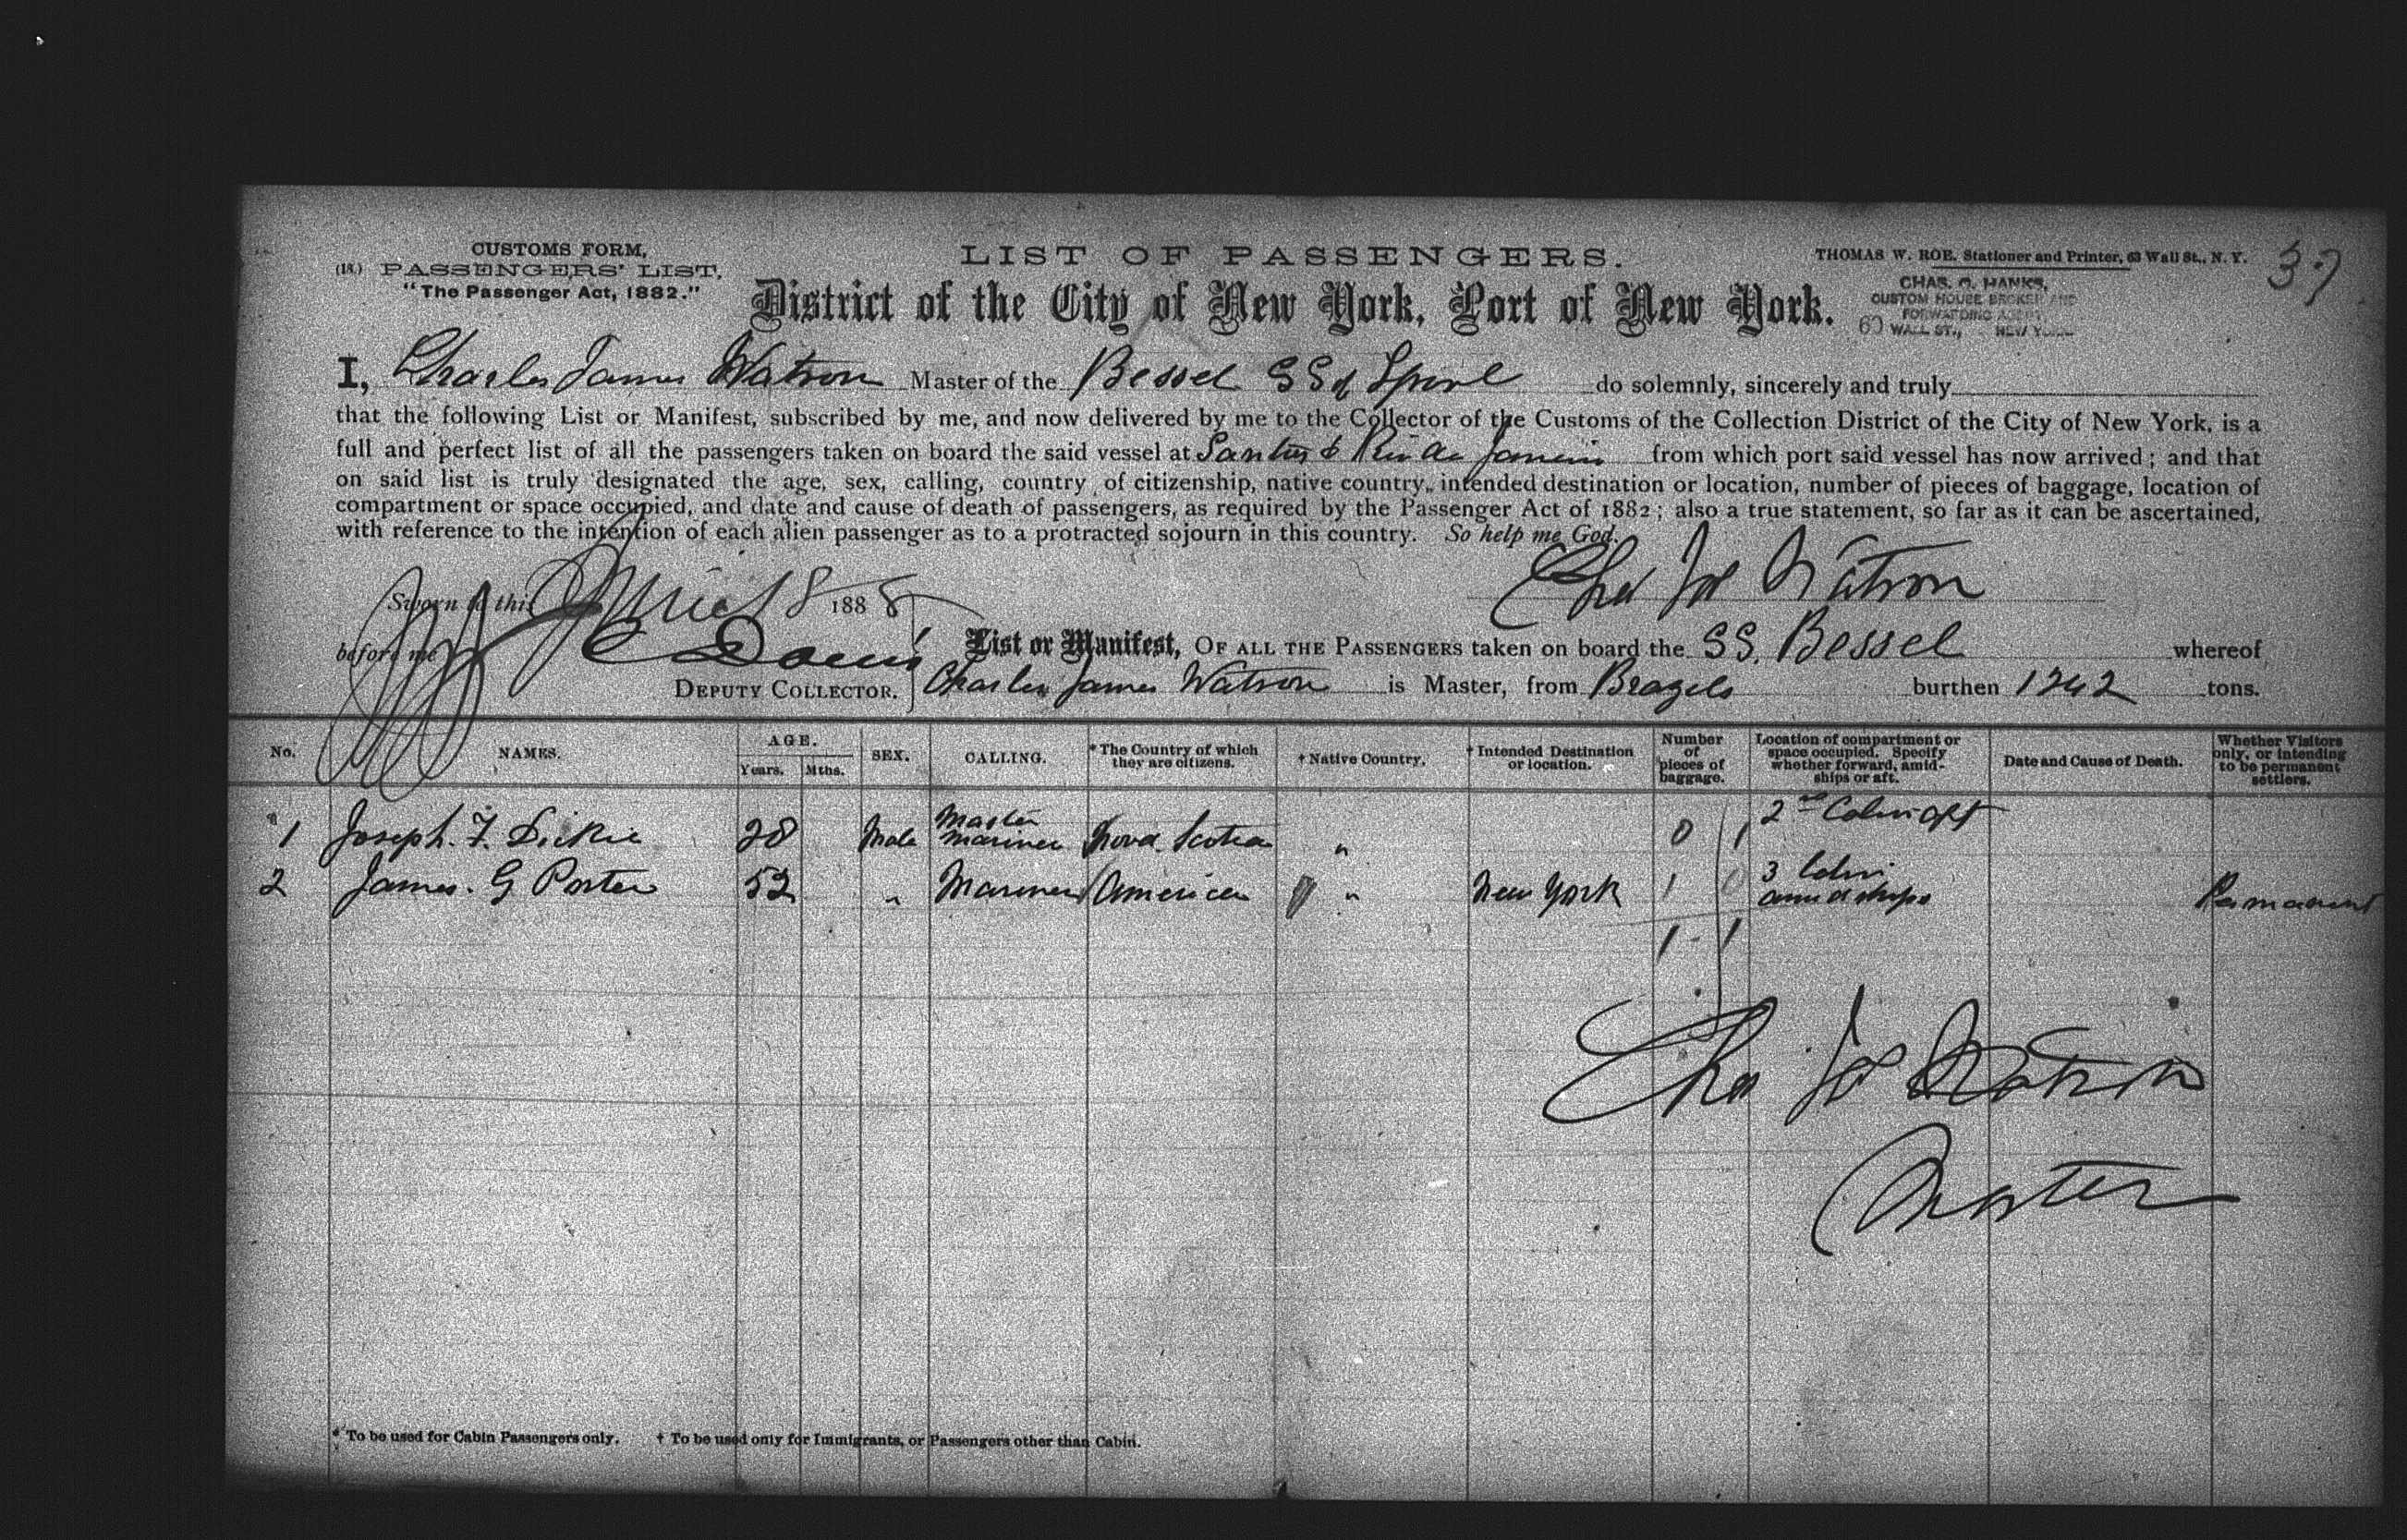 CUSTOMS FORM,
(18.) PASSENGERS' LIST.
"The Passenger Act, 1882."
LIST OF PASSENGERS.
THOMAS W. ROE, Stationer and Printer, 63 Wall St., N. Y.
37
District of the City of New York, Port of New York.
CHAS. O. HANKS,
CUSTOM HOUSE BROKER AND
FORWARDING AGENT,
WALL ST., NEW YORK
I, Charles James Watson Master of the Bessel SS of Lpool do solemnly, sincerely and truly
that the following List or Manifest, subscribed by me, and now delivered by me to the Collector of the Customs of the Collection District of the City of New York, is a
full and perfect list of all the passengers taken on board the said vessel at Santos & Rio de Janeiro from which port said vessel has now arrived; and that
on said list is truly designated the age, sex, calling, country of citizenship, native country, intended destination or location, number of pieces of baggage, location of
compartment or space occupied, and date and cause of death of passengers, as required by the Passenger Act of 1882; also a true statement, so far as it can be ascertained,
with reference to the intention of each alien passenger as to a protracted sojourn in this country. So help me God.
Chas Jas Watson
Sworn to this 18 1888
before me
List or Manifest, OF ALL THE PASSENGERS taken on board the SS. Bessel whereof
DEPUTY COLLECTOR. Charles James Watson is Master, from Brazils burthen 1242 tons.
No. NAMES. AGE. Years. Mths. SEX. CALLING. * The Country of which they are citizens. † Native Country. † Intended Destination or location. Number of pieces of baggage. Location of compartment or space occupied. Specify whether forward, amidships or aft. Date and Cause of Death. Whether Visitors only, or intending to be permanent settlers.
1 Joseph. F. Dickie 28 Male Master Mariner Nova Scotia " 0 1 2nd Cabin aft
2 James. G Porter 52 " Mariner American " New York 1 0 3 Cabin amidships Permanent
1 - 1
Chas Jas Watson
Master
* To be used for Cabin Passengers only. † To be used only for Immigrants, or Passengers other than Cabin.